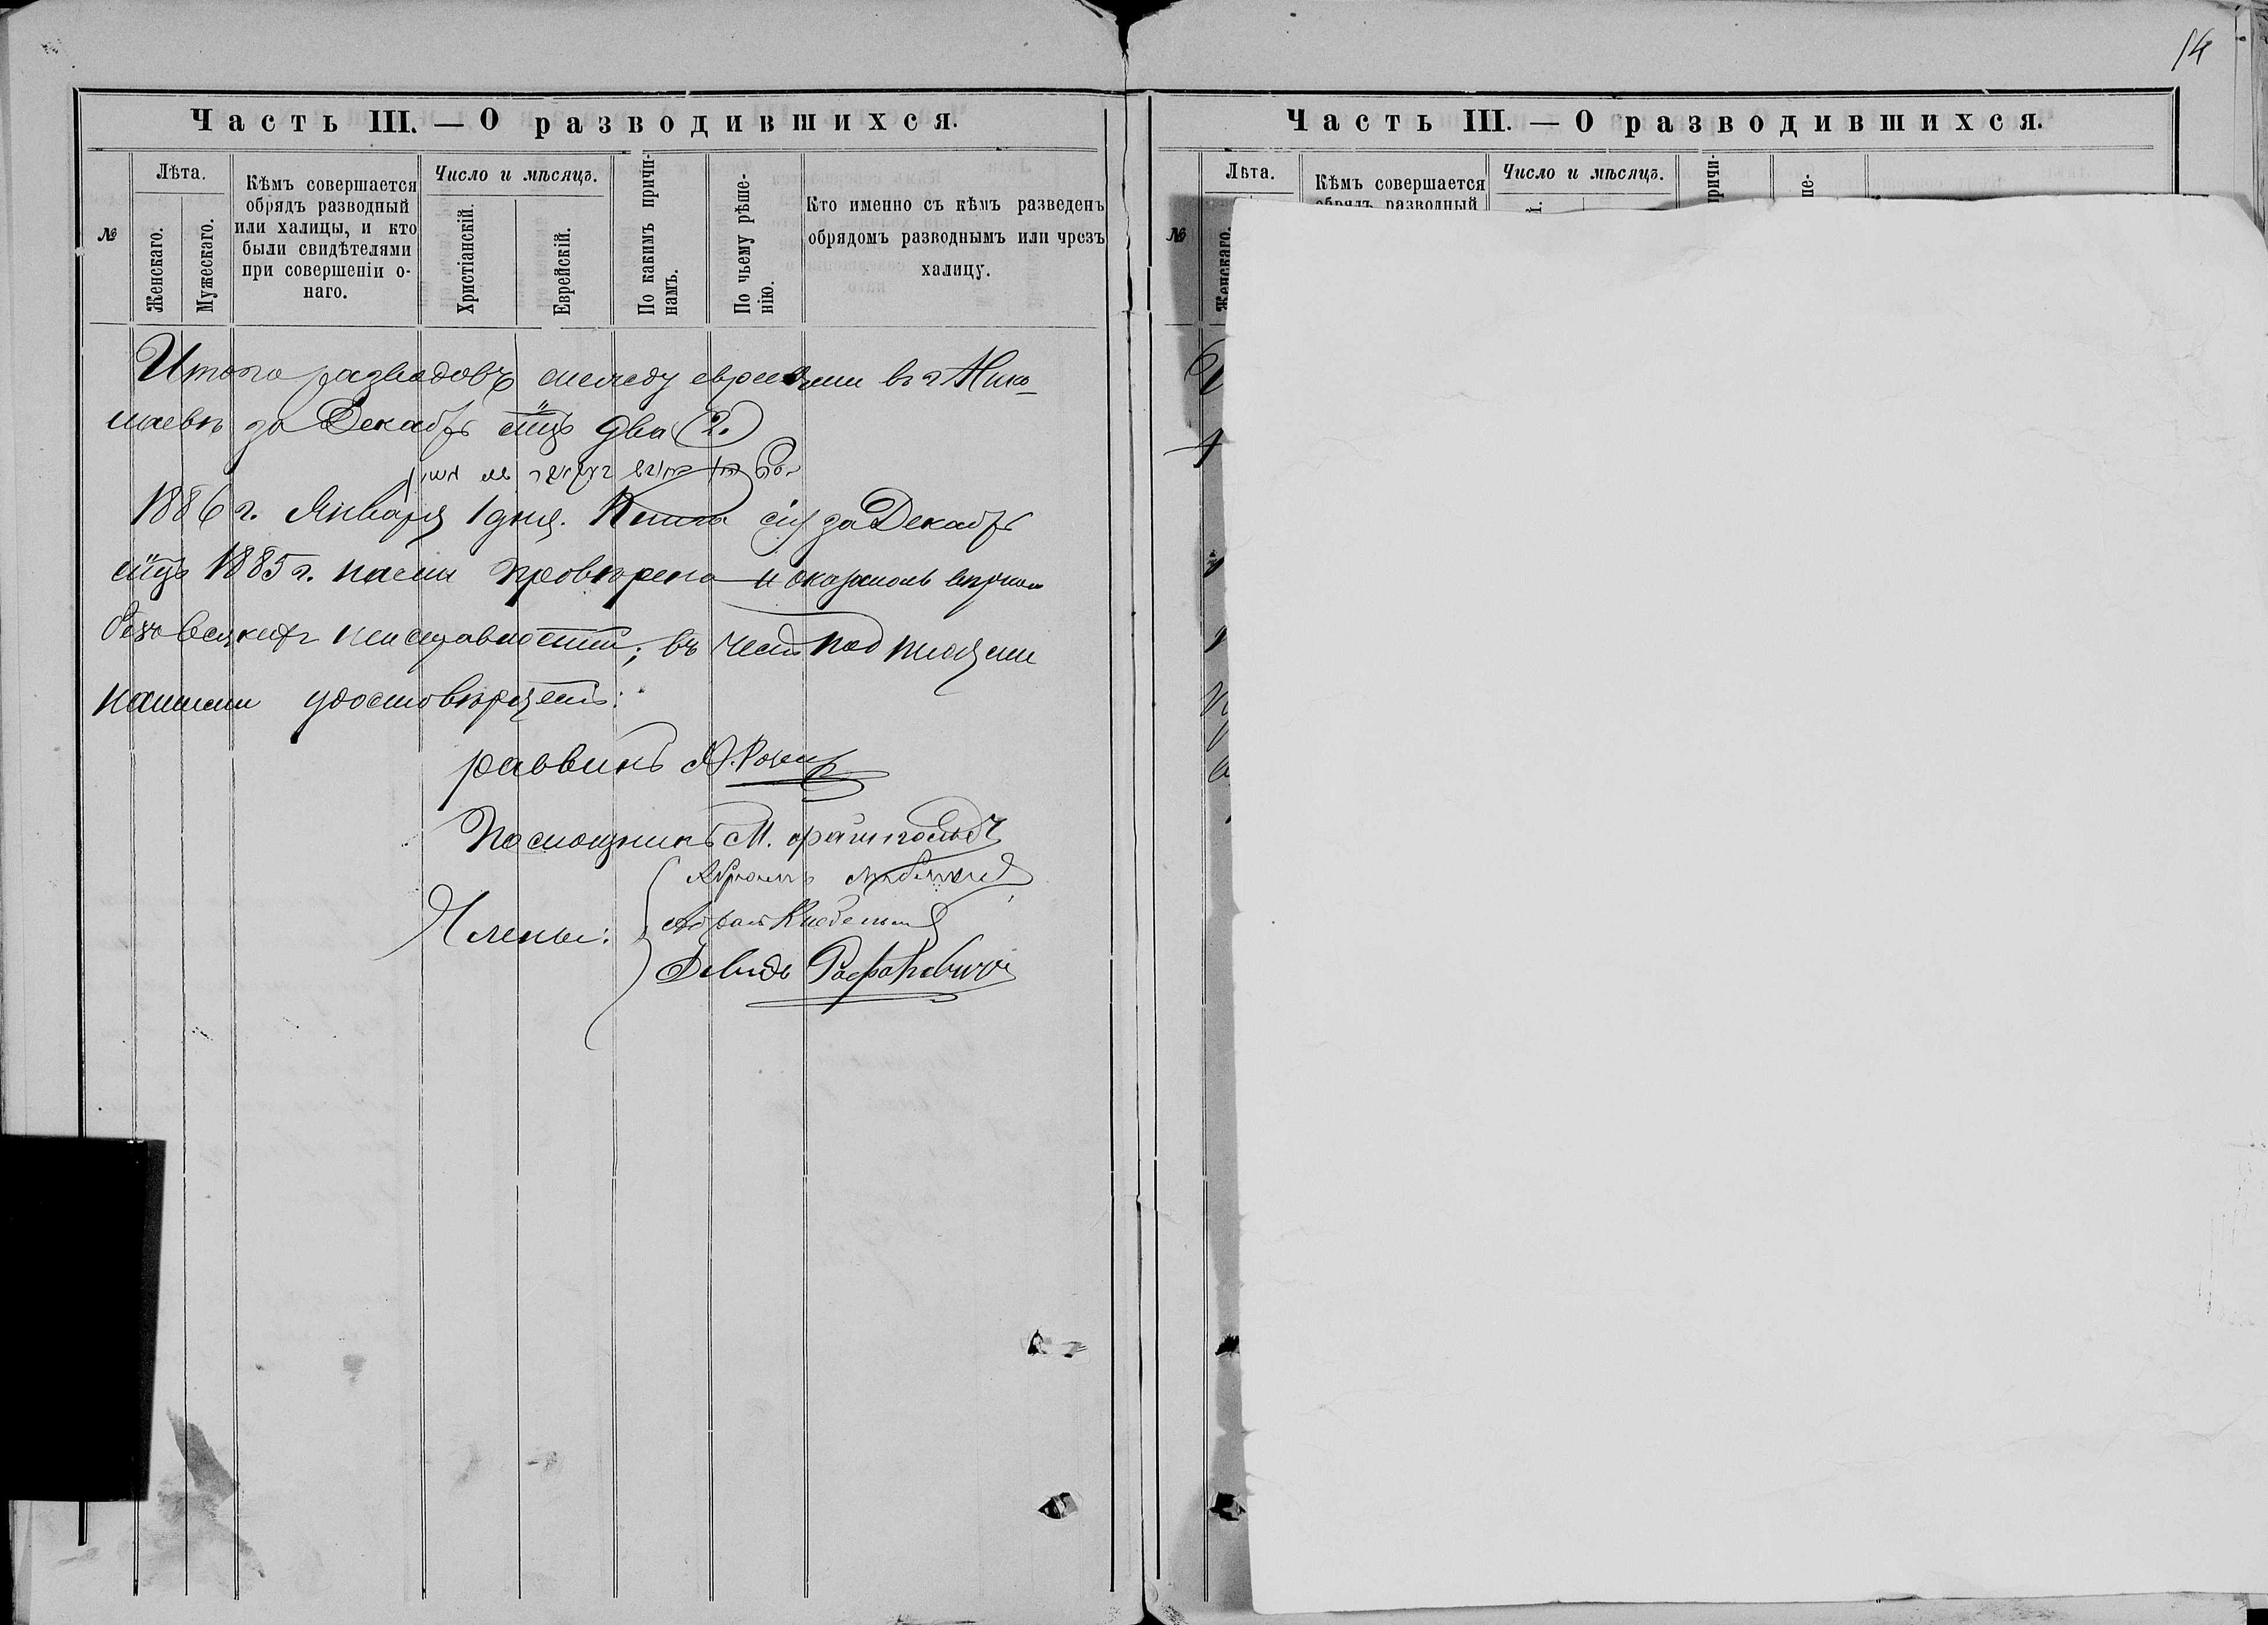 14
Часть III. — О разводившихся.
№
Лѣта.
Женскаго.
Мужескаго.
Кѣмъ совершается
обрядъ разводный
или халицы, и кто
были свидѣтелями
при совершеніи о-
наго.
Число и мѣсяцъ.
Христіанскій.
Еврейскій.
По какимъ причи-
намъ.
По чьему рѣше-
нію.
Кто именно съ кѣмъ разведенъ
обрядомъ разводнымъ или чрезъ
халицу.
Итого разводовъ между евреями въ г Нико-
лаевѣ за Декабрь м̃цъ два (2.)
1886 г. Января 1 дня. Книга сія за Декабрь
м̃цъ 1885 г. нами провѣрена и оказалась вѣрною
безъ всякихъ неисправностей; въ чемъ подписями
нашими удостовѣряемъ:
раввинъ
Помощникъ М.
Члены:
Абрамъ
Абрамъ
Давидъ Рафаловичъ
Часть III. — О разводившихся.
№
Лѣта.
Женскаго.
Кѣмъ совершается
обрядъ разводный
Число и мѣсяцъ.
причи-